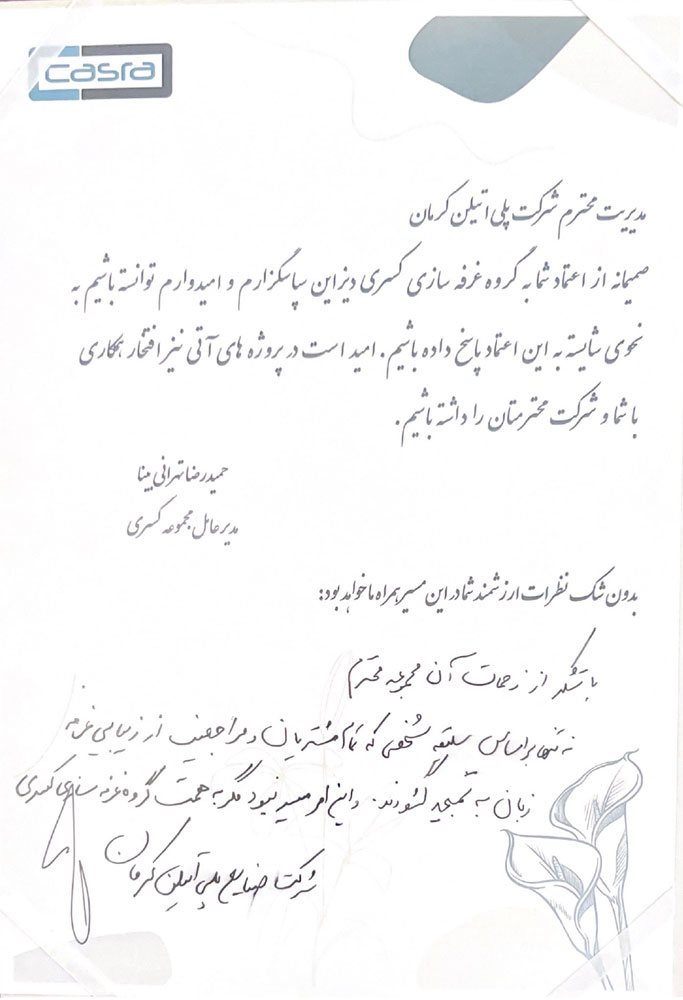 casra
مدیریت محترم شرکت پلی اتیلن کرمان
صمیمانه از اعتماد شما به گروه غرفه سازی کسری دیزاین سپاسگزارم و امیدوارم توانسته باشیم به
نحوی شایسته به این اعتماد پاسخ داده باشیم. امید است در پروژه های آتی نیز افتخار همکاری
با شما و شرکت محترمتان را داشته باشیم.
حمیدرضا تهرانی بینا
مدیرعامل مجموعه کسری
بدون شک نظرات ارزشمند شما در این مسیر همراه ما خواهد بود:
با تشکر از زحمات آن مجموعه محترم
نه تنها بر اساس سلیقه شخصی که تمام مشتریان و مراجعین از زیبایی غرفه
زبان به تمجید گشودند. و این امر میسر نبود مگر به همت گروه غرفه سازی کسری
شرکت صنایع پلی اتیلن کرمان